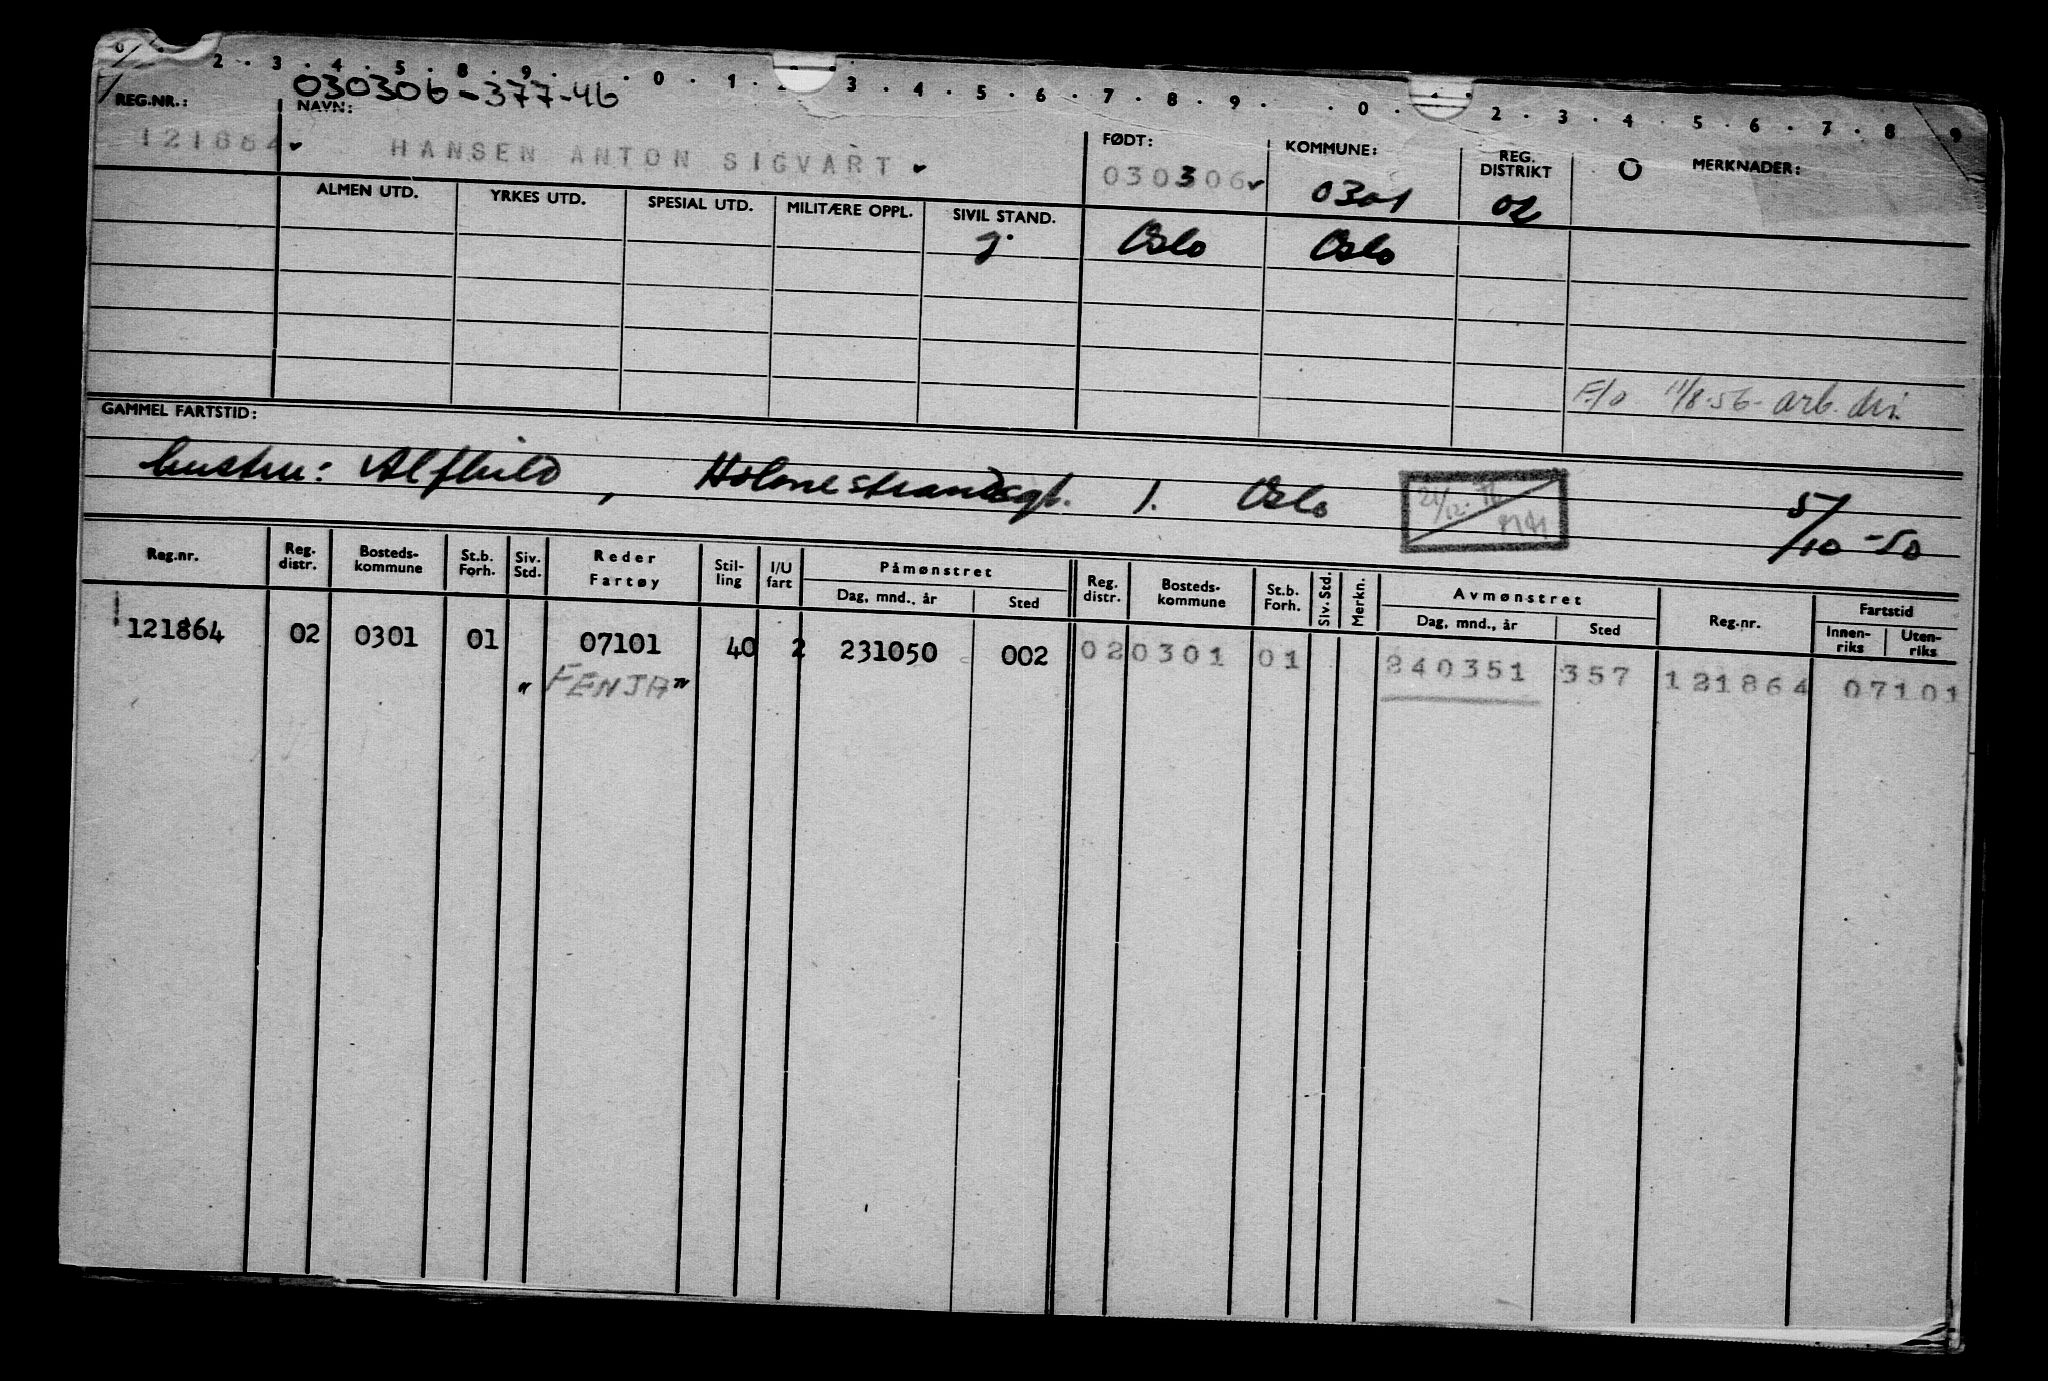 0 2 · 3 · 4 · 5 · 8 · 9 · · 0 · 1 · 2 3 · 4 · 5 · 6 · 7 · 8 · 9 · · 0 · 1 · 2 · 3 · 4 · 5 · 6 · 7 · 8 9
030306-377-46
REG.NR.: NAVN: FØDT: KOMMUNE: REG. DISTRIKT O MERKNADER:
121864 HANSEN ANTON SIGVART 030306 0301 02
ALMEN UTD. YRKES UTD. SPESIAL UTD. MILITÆRE OPPL. SIVIL STAND.
g. Oslo Oslo
F/o 11/8-56- arb. dir.
GAMMEL FARTSTID:
hustru: Alfhild, Holmestrandsgt. 1. Oslo 21/12. 5/10-50
Reg.nr. Reg. distr. Bosteds-kommune St.b. Forh. Siv. Std. Reder Fartøy Stil-ling I/U fart Påmønstret Dag, mnd., år Sted Reg. distr. Bosteds-kommune St.b. Forh. Siv. Std. Merkn. Avmønstret Dag, mnd., år Sted Reg.nr. Fartstid Innen-riks Uten-riks
121864 02 0301 01 07101 40 2 231050 002 02 0301 01 240351 357 121864 07101
"FENJA"